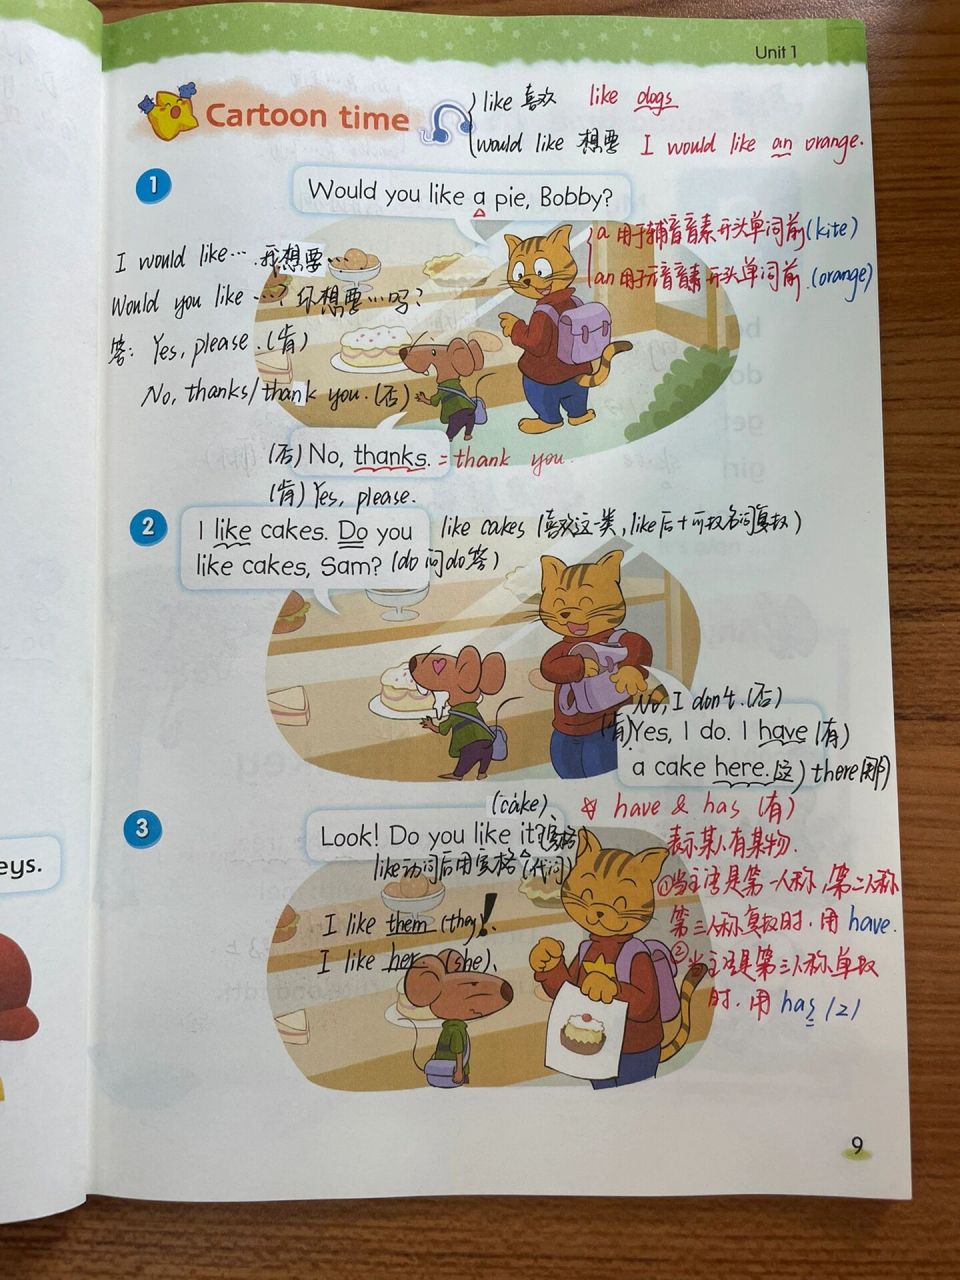 Unit 1
Cartoon time
like 喜欢 like dogs
would like 想要 I would like an orange.
1
Would you like a pie, Bobby?
a 用于辅音音素开头单词前(kite)
an 用于元音音素开头单词前.(orange)
I would like… 我想要…
Would you like …? 你想要…吗?
答: Yes, please. (肯)
No, thanks/thank you. (否)
(否) No, thanks. = thank you.
(肯) Yes, please.
2
I like cakes. Do you
like cakes, Sam? (do 问 do 答)
like cakes (喜欢这一类, like后+可数名词复数)
No, I don't. (否)
(肯) Yes, I do. I have (有)
a cake here. (这) there(那)
3
(cake)、
Look! Do you like it? (宾格)
like动词后用宾格(代词)
I like them (they)、!
I like her (she)、
have & has (有)
表示某人有某物.
①当主语是第一人称,第二人称
第三人称复数时.用 have.
②当主语是第三人称单数
时.用 has /z/
eys.
9